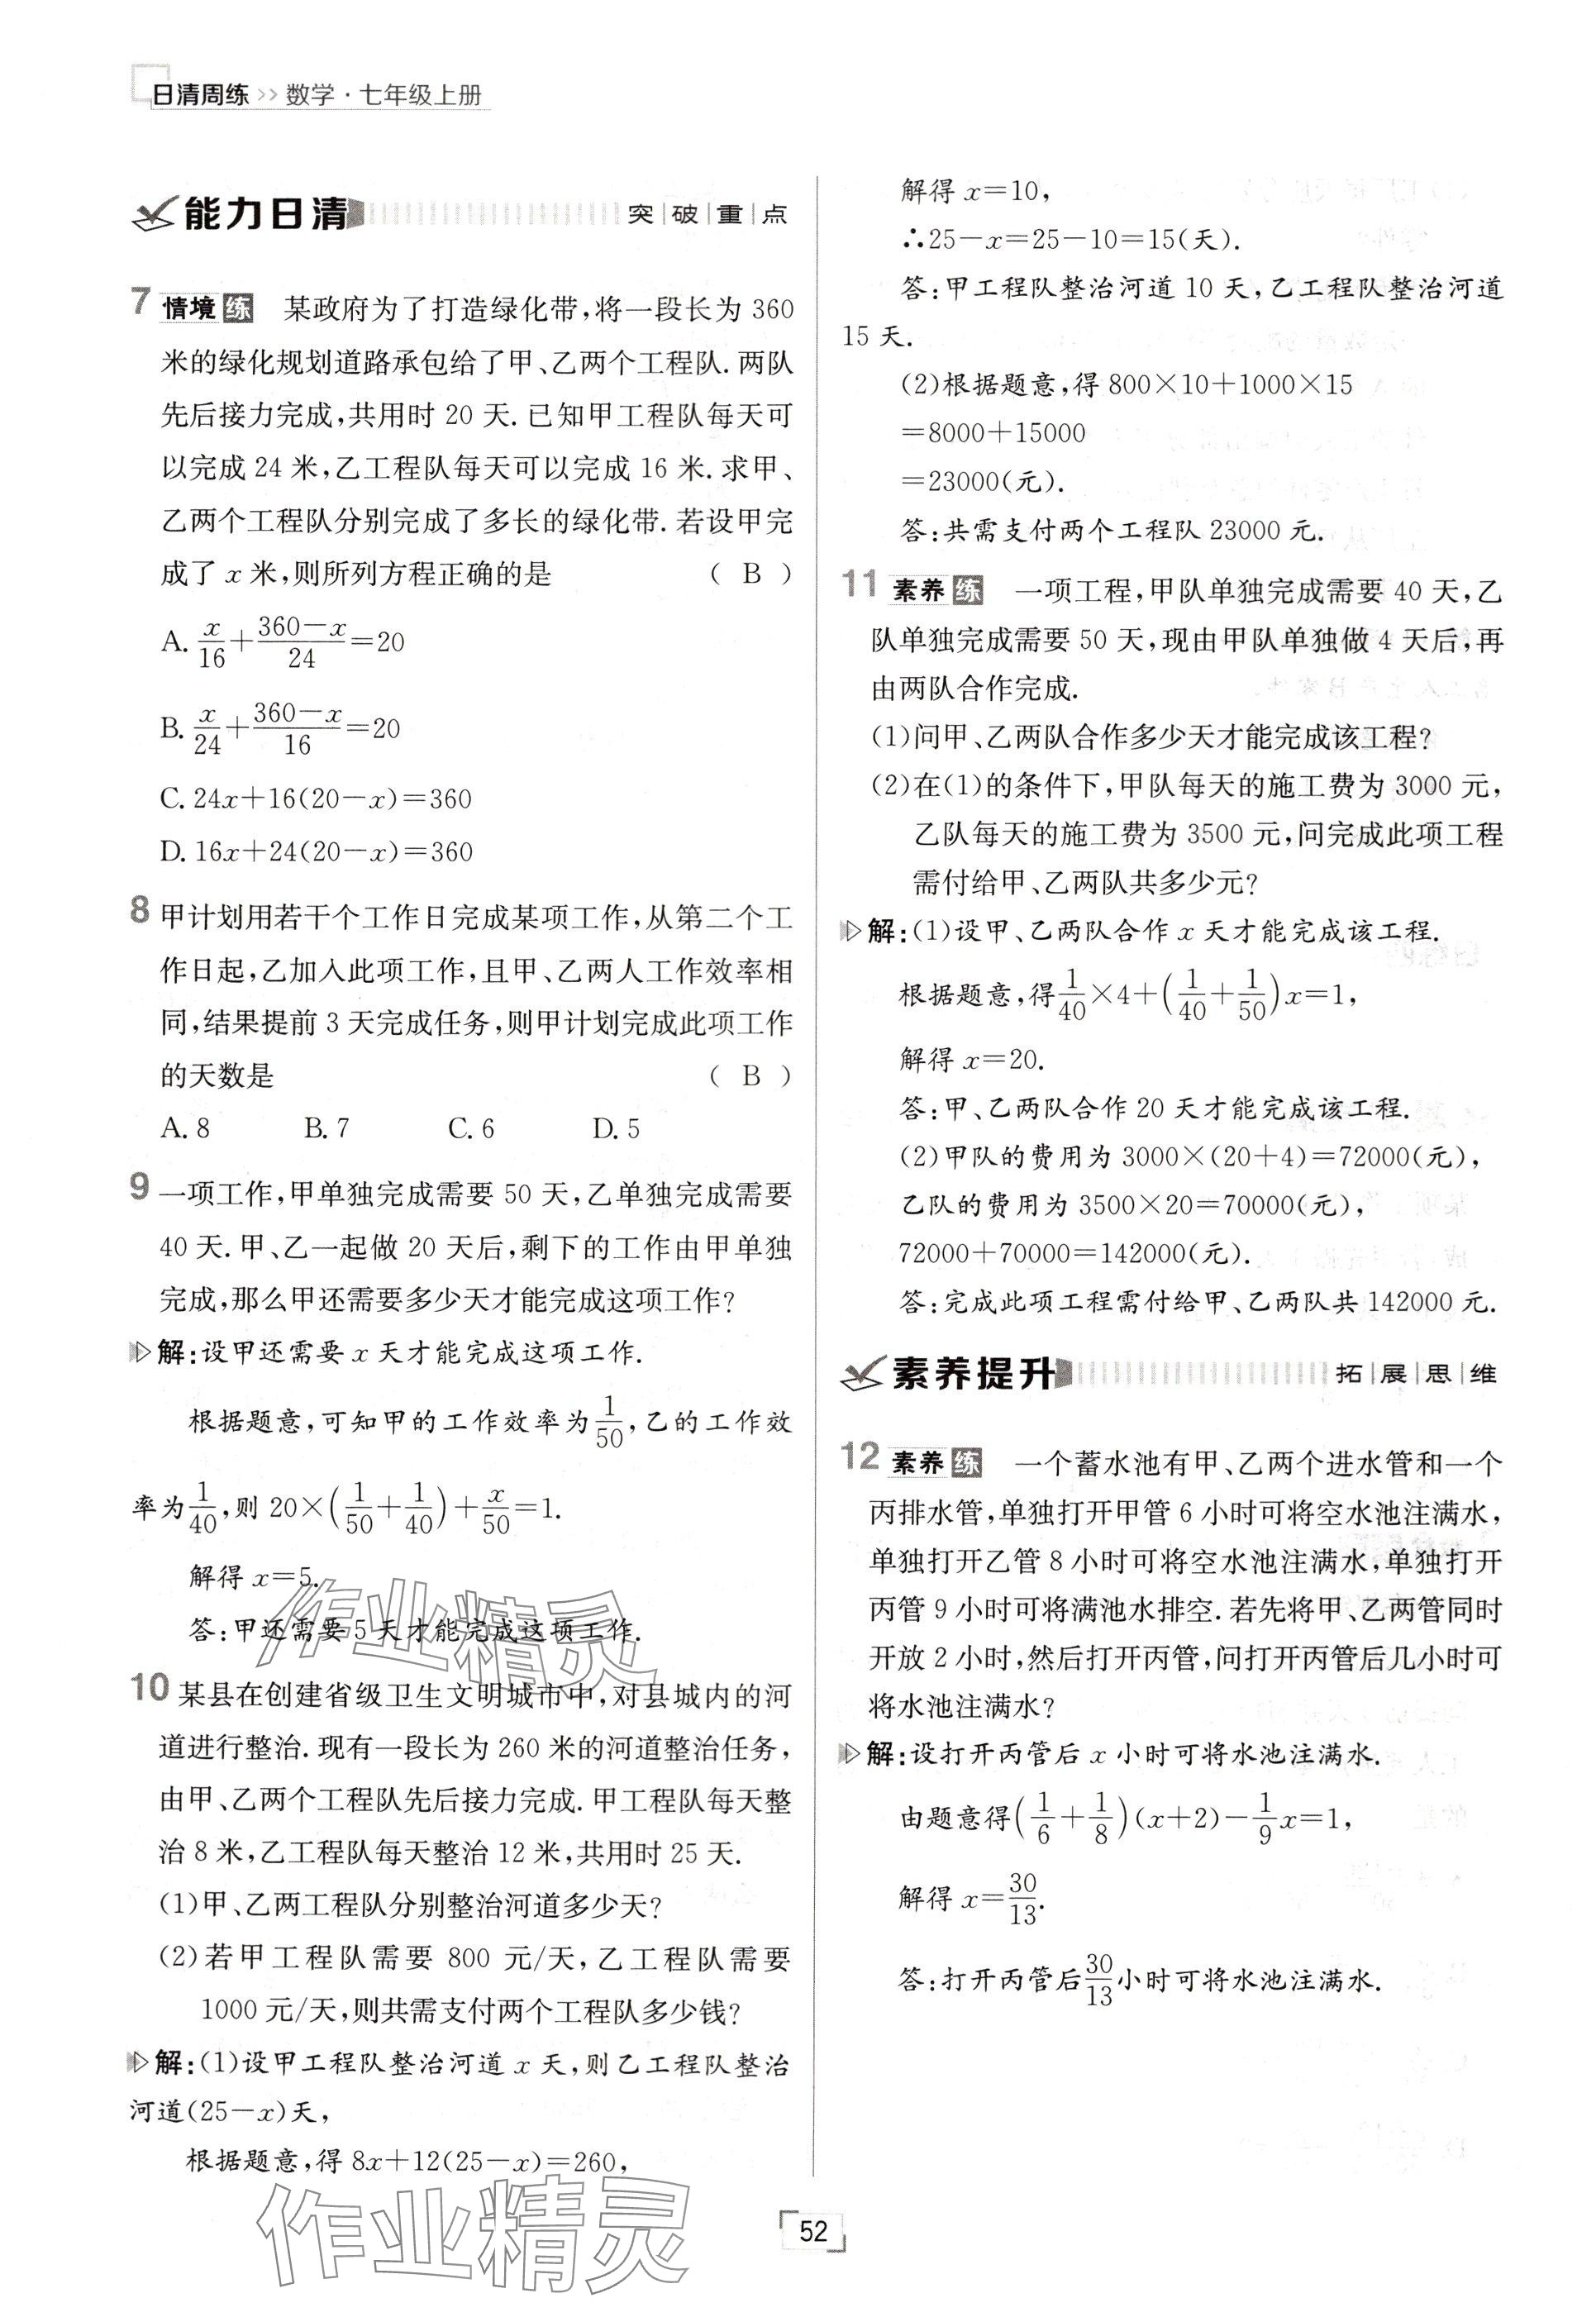 日清周练>>数学·七年级上册
能力日清 突|破|重|点
7 情境练 某政府为了打造绿化带,将一段长为 360
米的绿化规划道路承包给了甲、乙两个工程队.两队
先后接力完成,共用时 20 天.已知甲工程队每天可
以完成 24 米,乙工程队每天可以完成 16 米.求甲、
乙两个工程队分别完成了多长的绿化带.若设甲完
成了 x 米,则所列方程正确的是 ( B )
A. x/16+(360-x)/24=20
B. x/24+(360-x)/16=20
C. 24x+16(20-x)=360
D. 16x+24(20-x)=360
8 甲计划用若干个工作日完成某项工作,从第二个工
作日起,乙加入此项工作,且甲、乙两人工作效率相
同,结果提前 3 天完成任务,则甲计划完成此项工作
的天数是 ( B )
A. 8 B. 7 C. 6 D. 5
9 一项工作,甲单独完成需要 50 天,乙单独完成需要
40 天.甲、乙一起做 20 天后,剩下的工作由甲单独
完成,那么甲还需要多少天才能完成这项工作?
解:设甲还需要 x 天才能完成这项工作.
根据题意,可知甲的工作效率为1/50,乙的工作效
率为1/40,则 20×(1/50+1/40)+x/50=1.
解得 x=5.
答:甲还需要 5 天才能完成这项工作.
作业精灵
10 某县在创建省级卫生文明城市中,对县城内的河
道进行整治.现有一段长为 260 米的河道整治任务,
由甲、乙两个工程队先后接力完成.甲工程队每天整
治 8 米,乙工程队每天整治 12 米,共用时 25 天.
(1)甲、乙两工程队分别整治河道多少天?
(2)若甲工程队需要 800 元/天,乙工程队需要
1000 元/天,则共需支付两个工程队多少钱?
解:(1)设甲工程队整治河道 x 天,则乙工程队整治
河道(25-x)天,
根据题意,得 8x+12(25-x)=260,
作业精灵
解得 x=10,
∴25-x=25-10=15(天).
答:甲工程队整治河道 10 天,乙工程队整治河道
15 天.
(2)根据题意,得 800×10+1000×15
=8000+15000
=23000(元).
答:共需支付两个工程队 23000 元.
11 素养练 一项工程,甲队单独完成需要 40 天,乙
队单独完成需要 50 天,现由甲队单独做 4 天后,再
由两队合作完成.
(1)问甲、乙两队合作多少天才能完成该工程?
(2)在(1)的条件下,甲队每天的施工费为 3000 元,
乙队每天的施工费为 3500 元,问完成此项工程
需付给甲、乙两队共多少元?
解:(1)设甲、乙两队合作 x 天才能完成该工程.
根据题意,得1/40×4+(1/40+1/50)x=1,
解得 x=20.
答:甲、乙两队合作 20 天才能完成该工程.
(2)甲队的费用为 3000×(20+4)=72000(元),
乙队的费用为 3500×20=70000(元),
72000+70000=142000(元).
答:完成此项工程需付给甲、乙两队共 142000 元.
素养提升 拓|展|思|维
12 素养练 一个蓄水池有甲、乙两个进水管和一个
丙排水管,单独打开甲管 6 小时可将空水池注满水,
单独打开乙管 8 小时可将空水池注满水,单独打开
丙管 9 小时可将满池水排空.若先将甲、乙两管同时
开放 2 小时,然后打开丙管,问打开丙管后几小时可
将水池注满水?
解:设打开丙管后 x 小时可将水池注满水.
由题意得(1/6+1/8)(x+2)-1/9x=1,
解得 x=30/13.
答:打开丙管后30/13小时可将水池注满水.
52